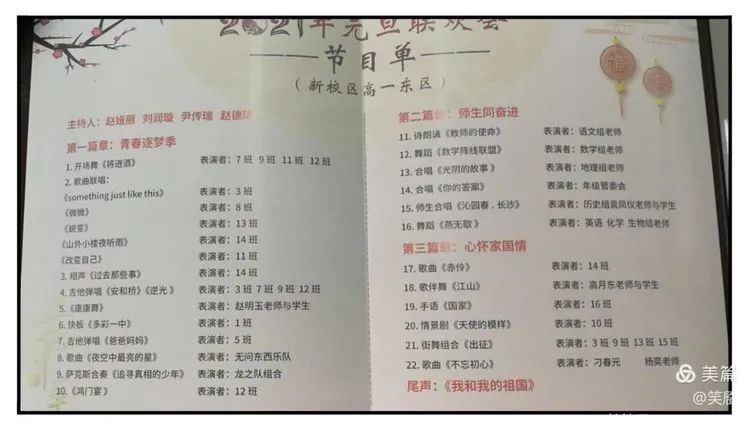 2021年元旦联欢会
节目单
（新校区高一东区）
主持人：赵娅丽 刘润璇 尹传瑞 赵德
第一篇章：青春逐梦季
1. 开场舞《将进酒》 表演者：7班 9班 11班 12班
2. 歌曲联唱：
《something just like this》 表演者：3班
《微微》 表演者：8班
《蜕变》 表演者：13班
《山外小楼夜听雨》 表演者：14班
《改变自己》 表演者：11班
3. 相声《过去那些事》 表演者：14班
4. 吉他弹唱《安和桥》《逆光》 表演者：3班 7班 9班 12班
5. 《康康舞》 表演者：赵明玉老师与学生
6. 快板《多彩一中》 表演者：1班
7. 吉他弹唱《爸爸妈妈》 表演者：5班
8. 歌曲《夜空中最亮的星》 表演者：无问东西乐队
9. 萨克斯合奏《追寻真相的少年》 表演者：龙之队组合
10. 《鸿门宴》 表演者：12班
第二篇章：师生同奋进
11. 诗朗诵《教师的使命》 表演者：语文组老师
12. 舞蹈《数学阵线联盟》 表演者：数学组老师
13. 合唱《光阴的故事》 表演者：地理组老师
14. 合唱《你的答案》 表演者：年级管委会
15. 师生合唱《沁园春．长沙》 表演者：历史组袁凤仪老师与学生
16. 舞蹈《燕无歇》 表演者：英语 化学 生物组老师
第三篇章：心怀家国情
17. 歌曲《赤伶》 表演者：14班
18. 歌伴舞《江山》 表演者：高月东老师与学生
19. 手语《国家》 表演者：16班
20. 情景剧《天使的模样》 表演者：10班
21. 街舞组合《出征》 表演者：3班 9班 13班 15班
22. 歌曲《不忘初心》 表演者：刁春元 杨奕老师
尾声：《我和我的祖国》
福
福
美篇
@笑